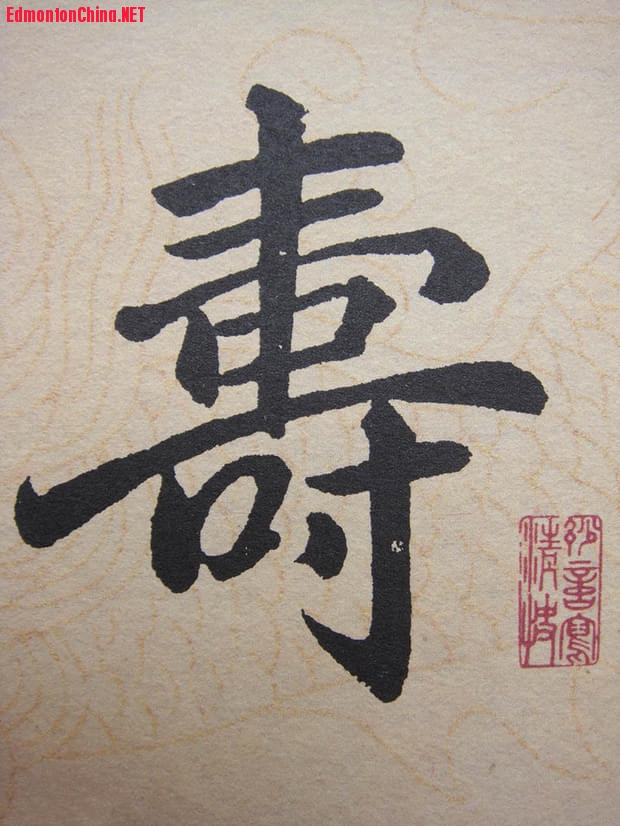 EdmontonChina.NET
壽